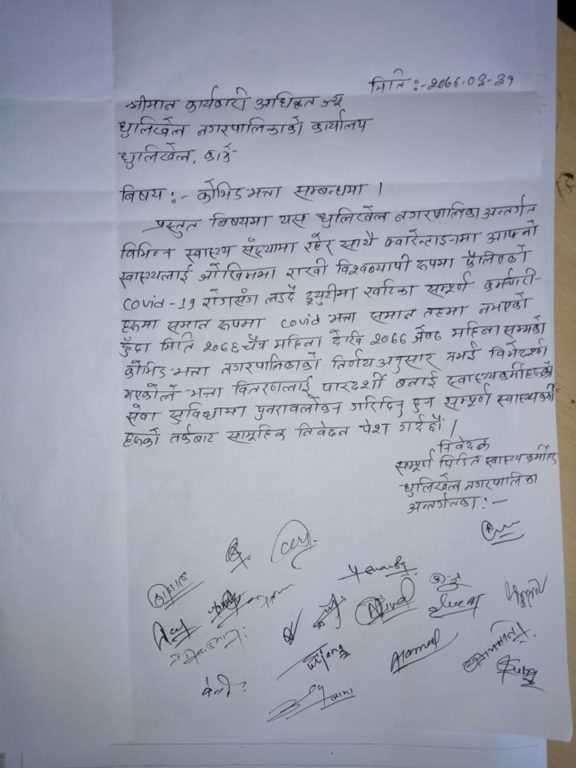 मिति:-2077-03-31
श्रीमान कार्यकारी अधिकृत ज्यू
धुलिखेल नगरपालिकाको कार्यालय
धुलिखेल, काभ्रे
बिषय:- कोभिड भत्ता सम्बन्धमा ।
प्रस्तुत बिषयमा यस धुलिखेल नगरपालिका अन्तर्गत
विभिन्न स्वास्थ्य संस्थामा रहेर साथै क्वारेन्टाइनमा आफ्नो
स्वास्थ्यलाई जोखिममा राखी विश्वव्यापी रूपमा फैलिएको
Covid-19 रोगसंग लड्दै ड्युटीमा खटिका सम्पूर्ण कर्मचारी-
हरूमा समान रूपमा Covid भत्ता समान तहमा नभएको
हुँदा मिति २०७६ चैत्र महिना देखि २०७७ जेष्ठ महिना सम्मको
कोभिड भत्ता नगरपालिकाको निर्णय अनुसार नभई विभेदपूर्ण
भएकोले भत्ता वितरणलाई पारदर्शी बनाई स्वास्थ्यकर्मीहरूको
सेवा सुविधामा पुनरावलोकन गरिदिनु हुन सम्पूर्ण स्वास्थ्यकर्मी
हरूको तर्फबाट सामूहिक निवेदन पेश गर्दछौं ।
निवेदक
सम्पूर्ण पिडित स्वास्थ्यकर्मीहरू
धुलिखेल नगरपालिका
अन्तर्गतका:-